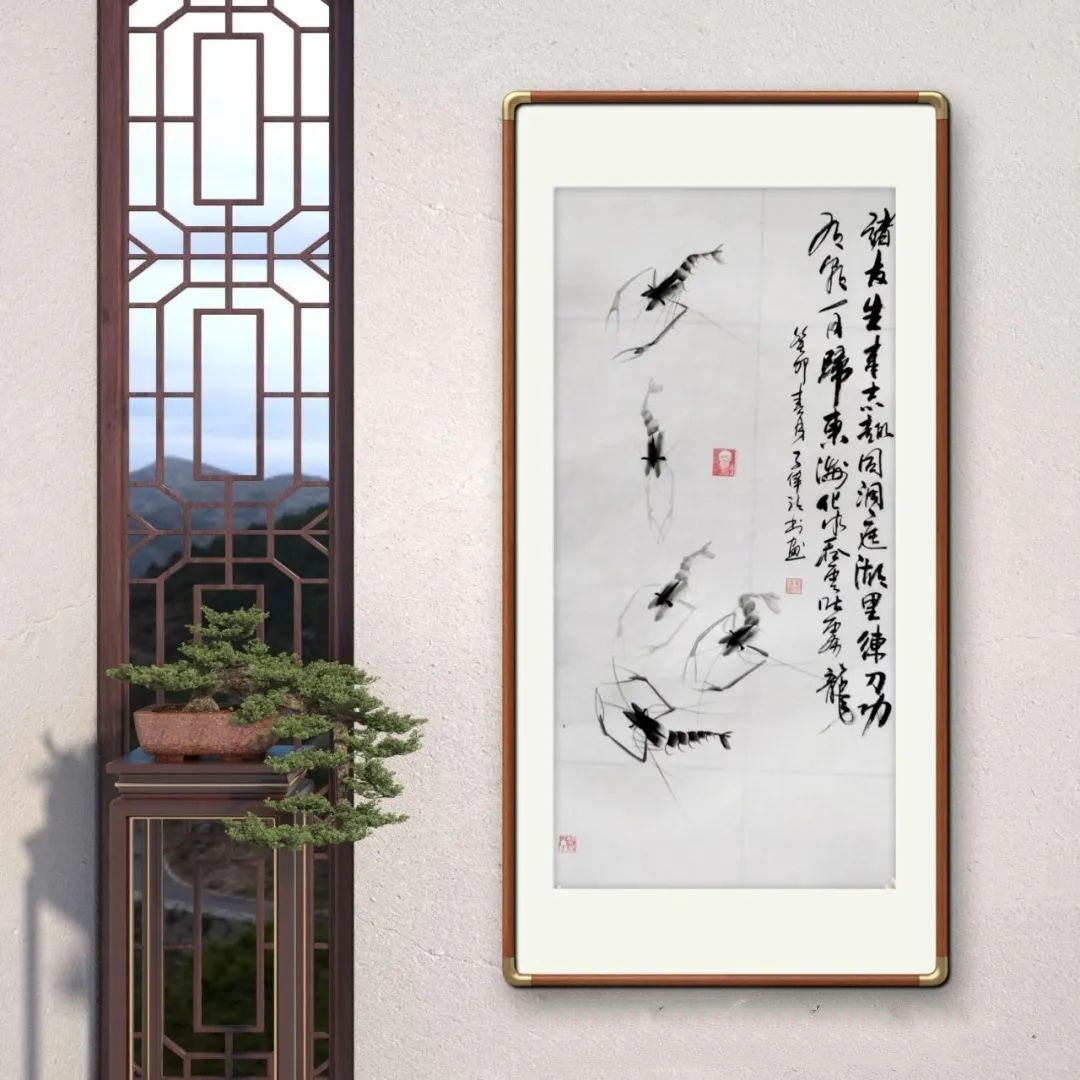 諸友生來志趣同洞庭湖里練刀功
有朝一日歸東海化作吞雲吐霧龍
癸卯春月子偉法書画